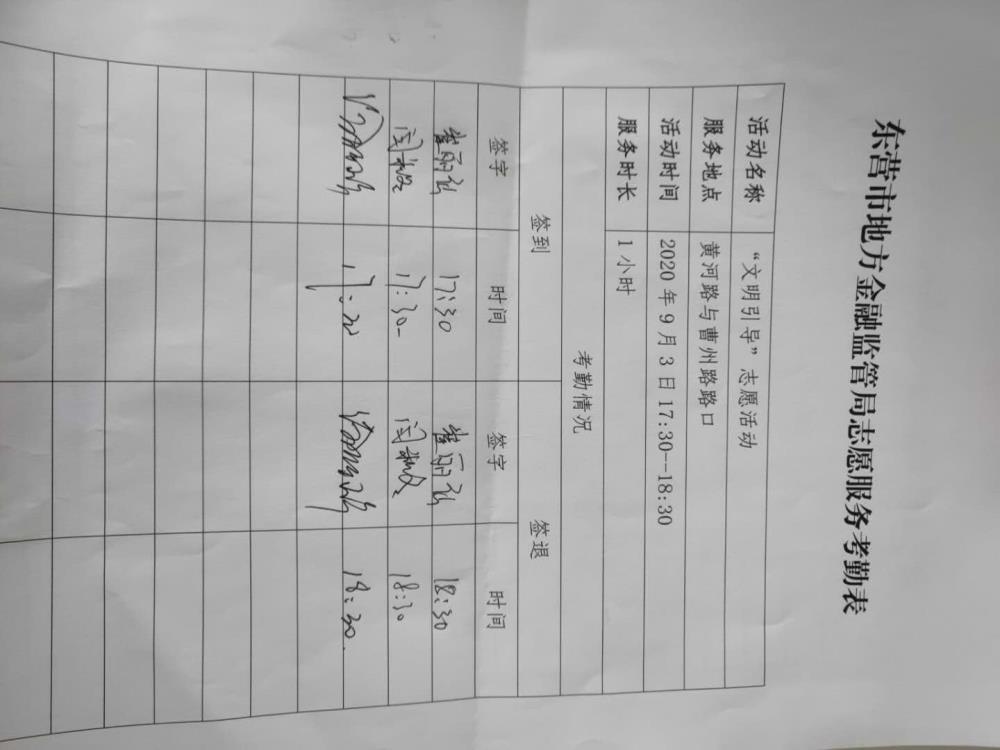 东营市地方金融监管局志愿服务考勤表
活动名称 “文明引导”志愿活动
服务地点 黄河路与曹州路路口
活动时间 2020年9月3日17:30--18:30
服务时长 1小时
考勤情况
签到 签退
签字 时间 签字 时间
17:30 18:30
17:30 18:30
18:30